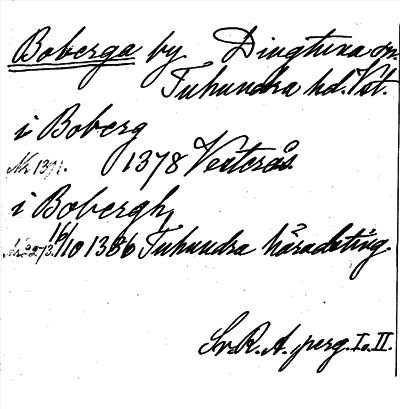 Boberga by Dingtuna sn.
Tuhundra hd. Vst.
i Boberg
Nr 1371. 1378 Vesterås
i Bobergh
Nr 2273. 16/10 1386 Tuhundra häradsting.
Sv. R. A. perg. I. II.